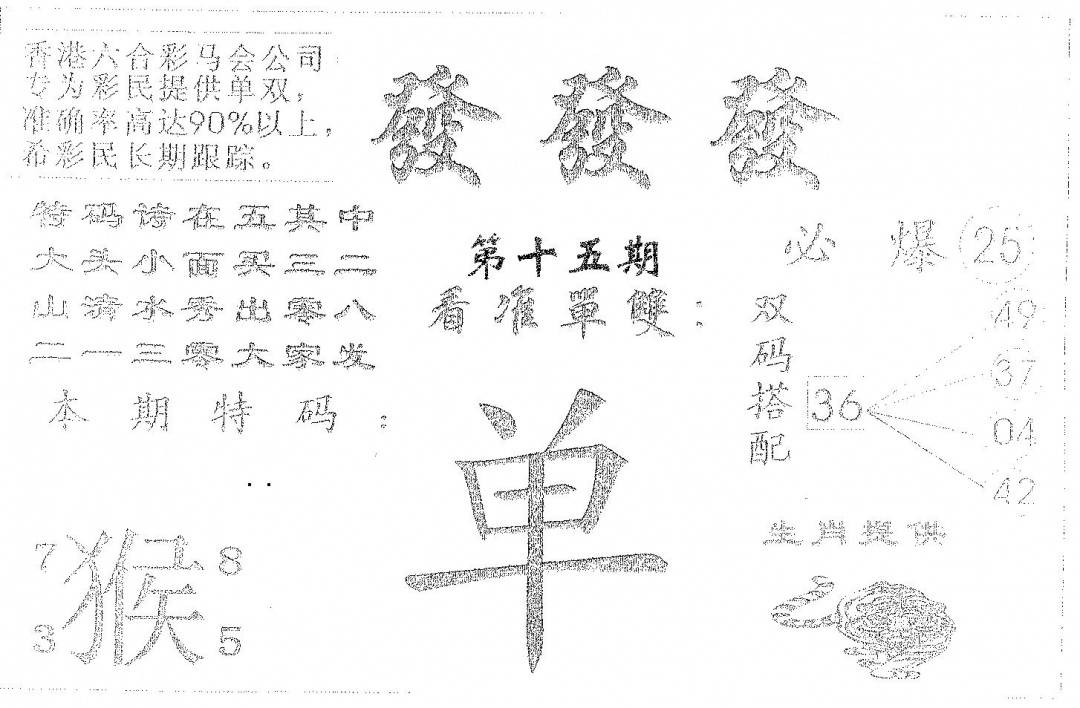 香港六合彩马会公司
专为彩民提供单双，
准确率高达90%以上，
希彩民长期跟踪。
發 發 發
特码诗在五其中
大头小面买三二
山清水秀出零八
二一三零大家发
本期特码：
第十五期
看准單雙：
单
必爆 25
双码搭配
36
49
37
04
42
7 8
猴
3 5
生肖提供